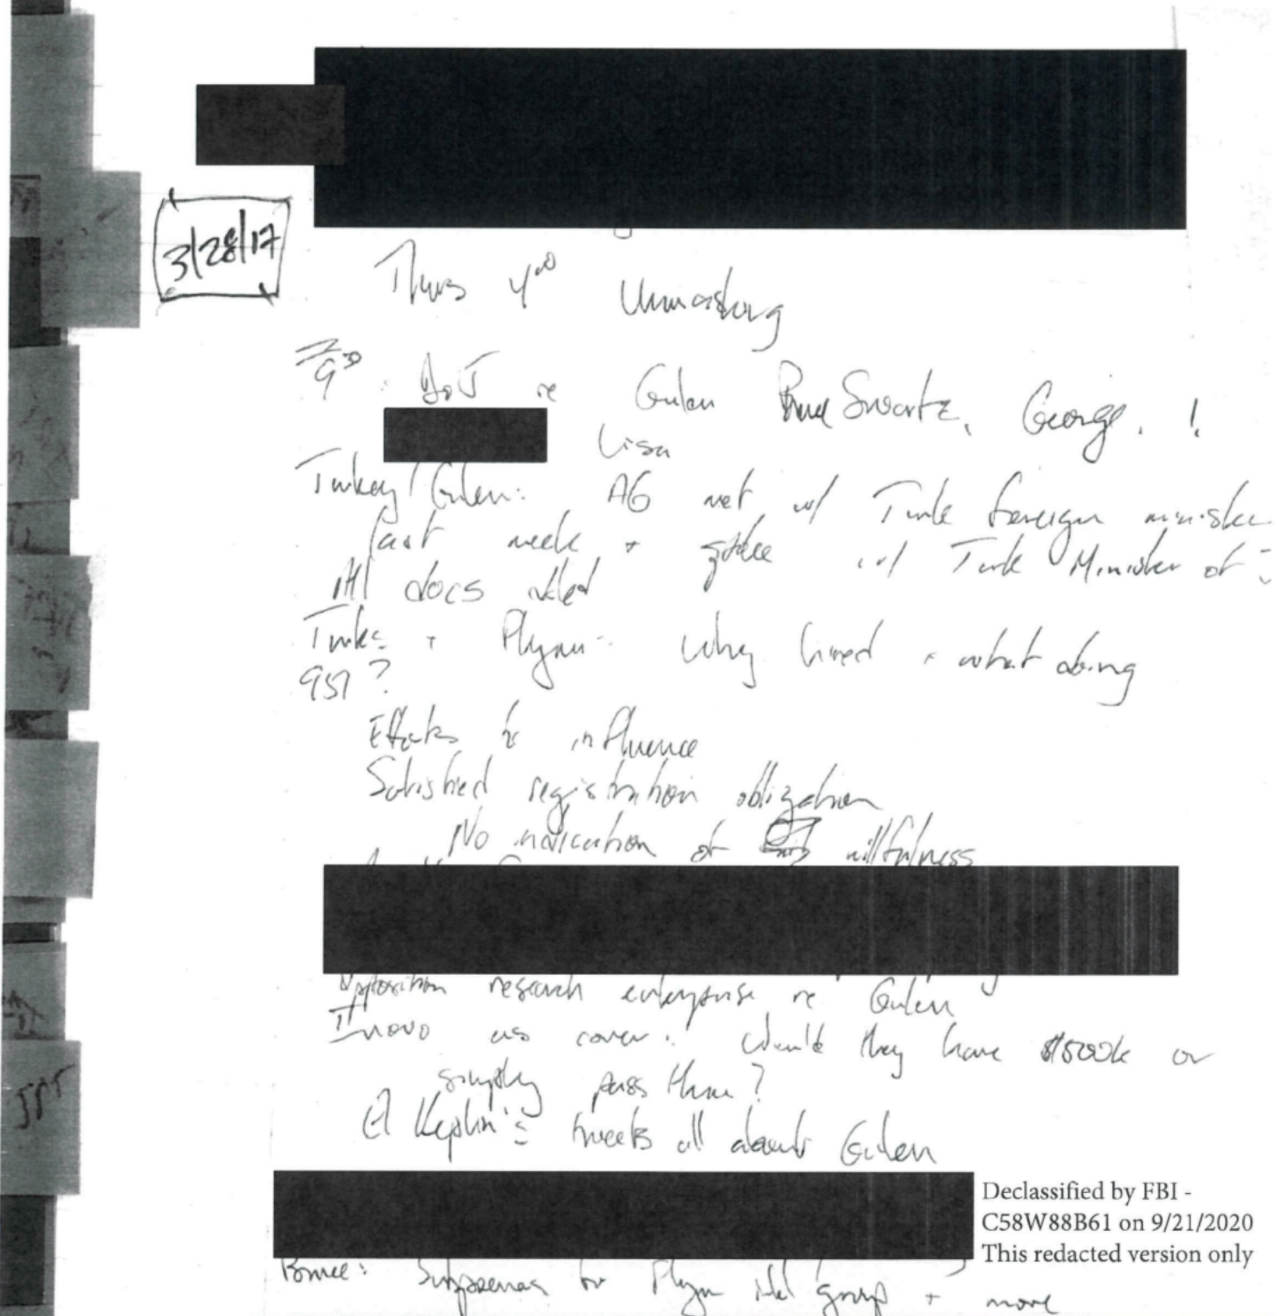 3/28/17
Thurs 4:00 Unmasking
9:30 DoJ re Gulen Bruce Swartz, George, !
Lisa
Turkey/Gulen: AG met w/ Turk foreign minister
last week + w/ Turk Minister of
All docs
Turks + Flynn - Why hired + what doing
951?
Efforts to influence
Satisfied registration obligation
No indication of willfulness
Opposition research enterprise re Gulen
Inovo as cover. Would they have $500k or
simply pass thru?
tweets all about Gulen
Declassified by FBI -
C58W88B61 on 9/21/2020
This redacted version only
Bruce: Subpoenas for Flynn Intel group + more
JPT